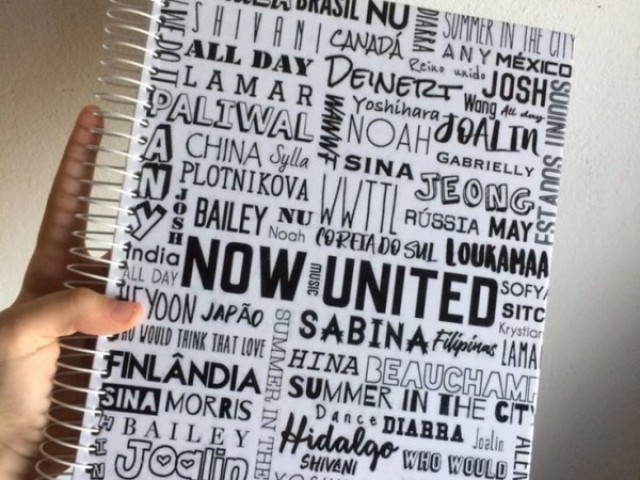 BRASIL NU
SUMMER IN THE CITY
DIARRA
SHIVANI
CANADÁ
ANY MÉXICO
ALL DAY
Reino unido
JOSH
LAMAR
DEINERT
Wong All day
PALIWAL
Yoshihara
NOAH
JOALIN
WWWF
ANY
CHINA Sylla
SINA
GABRIELLY
PLOTNIKOVA
WWTTL
JEONG
JOSH
BAILEY NU
RÚSSIA MAY
Noah
COREIA DO SUL
LOUKAMAA
India
ALL DAY
NOW
music
UNITED
SOFY
HEYOON JAPÃO
SITC
SABINA
Filipinas
Krystian
LAMA
WHO WOULD THINK THAT LOVE
SUMMER IN THE
HINA
BEAUCHAMP
FINLÂNDIA
SUMMER IN THE CITY
SINA MORRIS
Dance
DIARRA
Joalin
BAILEY
Hidalgo
SHIVANI
WHO WOULD
Joalin